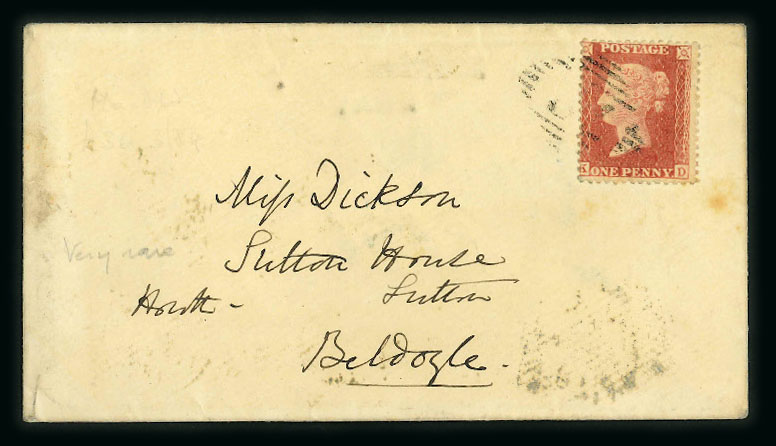 POSTAGE
K D
ONE PENNY
Miss Dickson
Sutton House
Howth - Sutton
Beldoyle.
Very rare